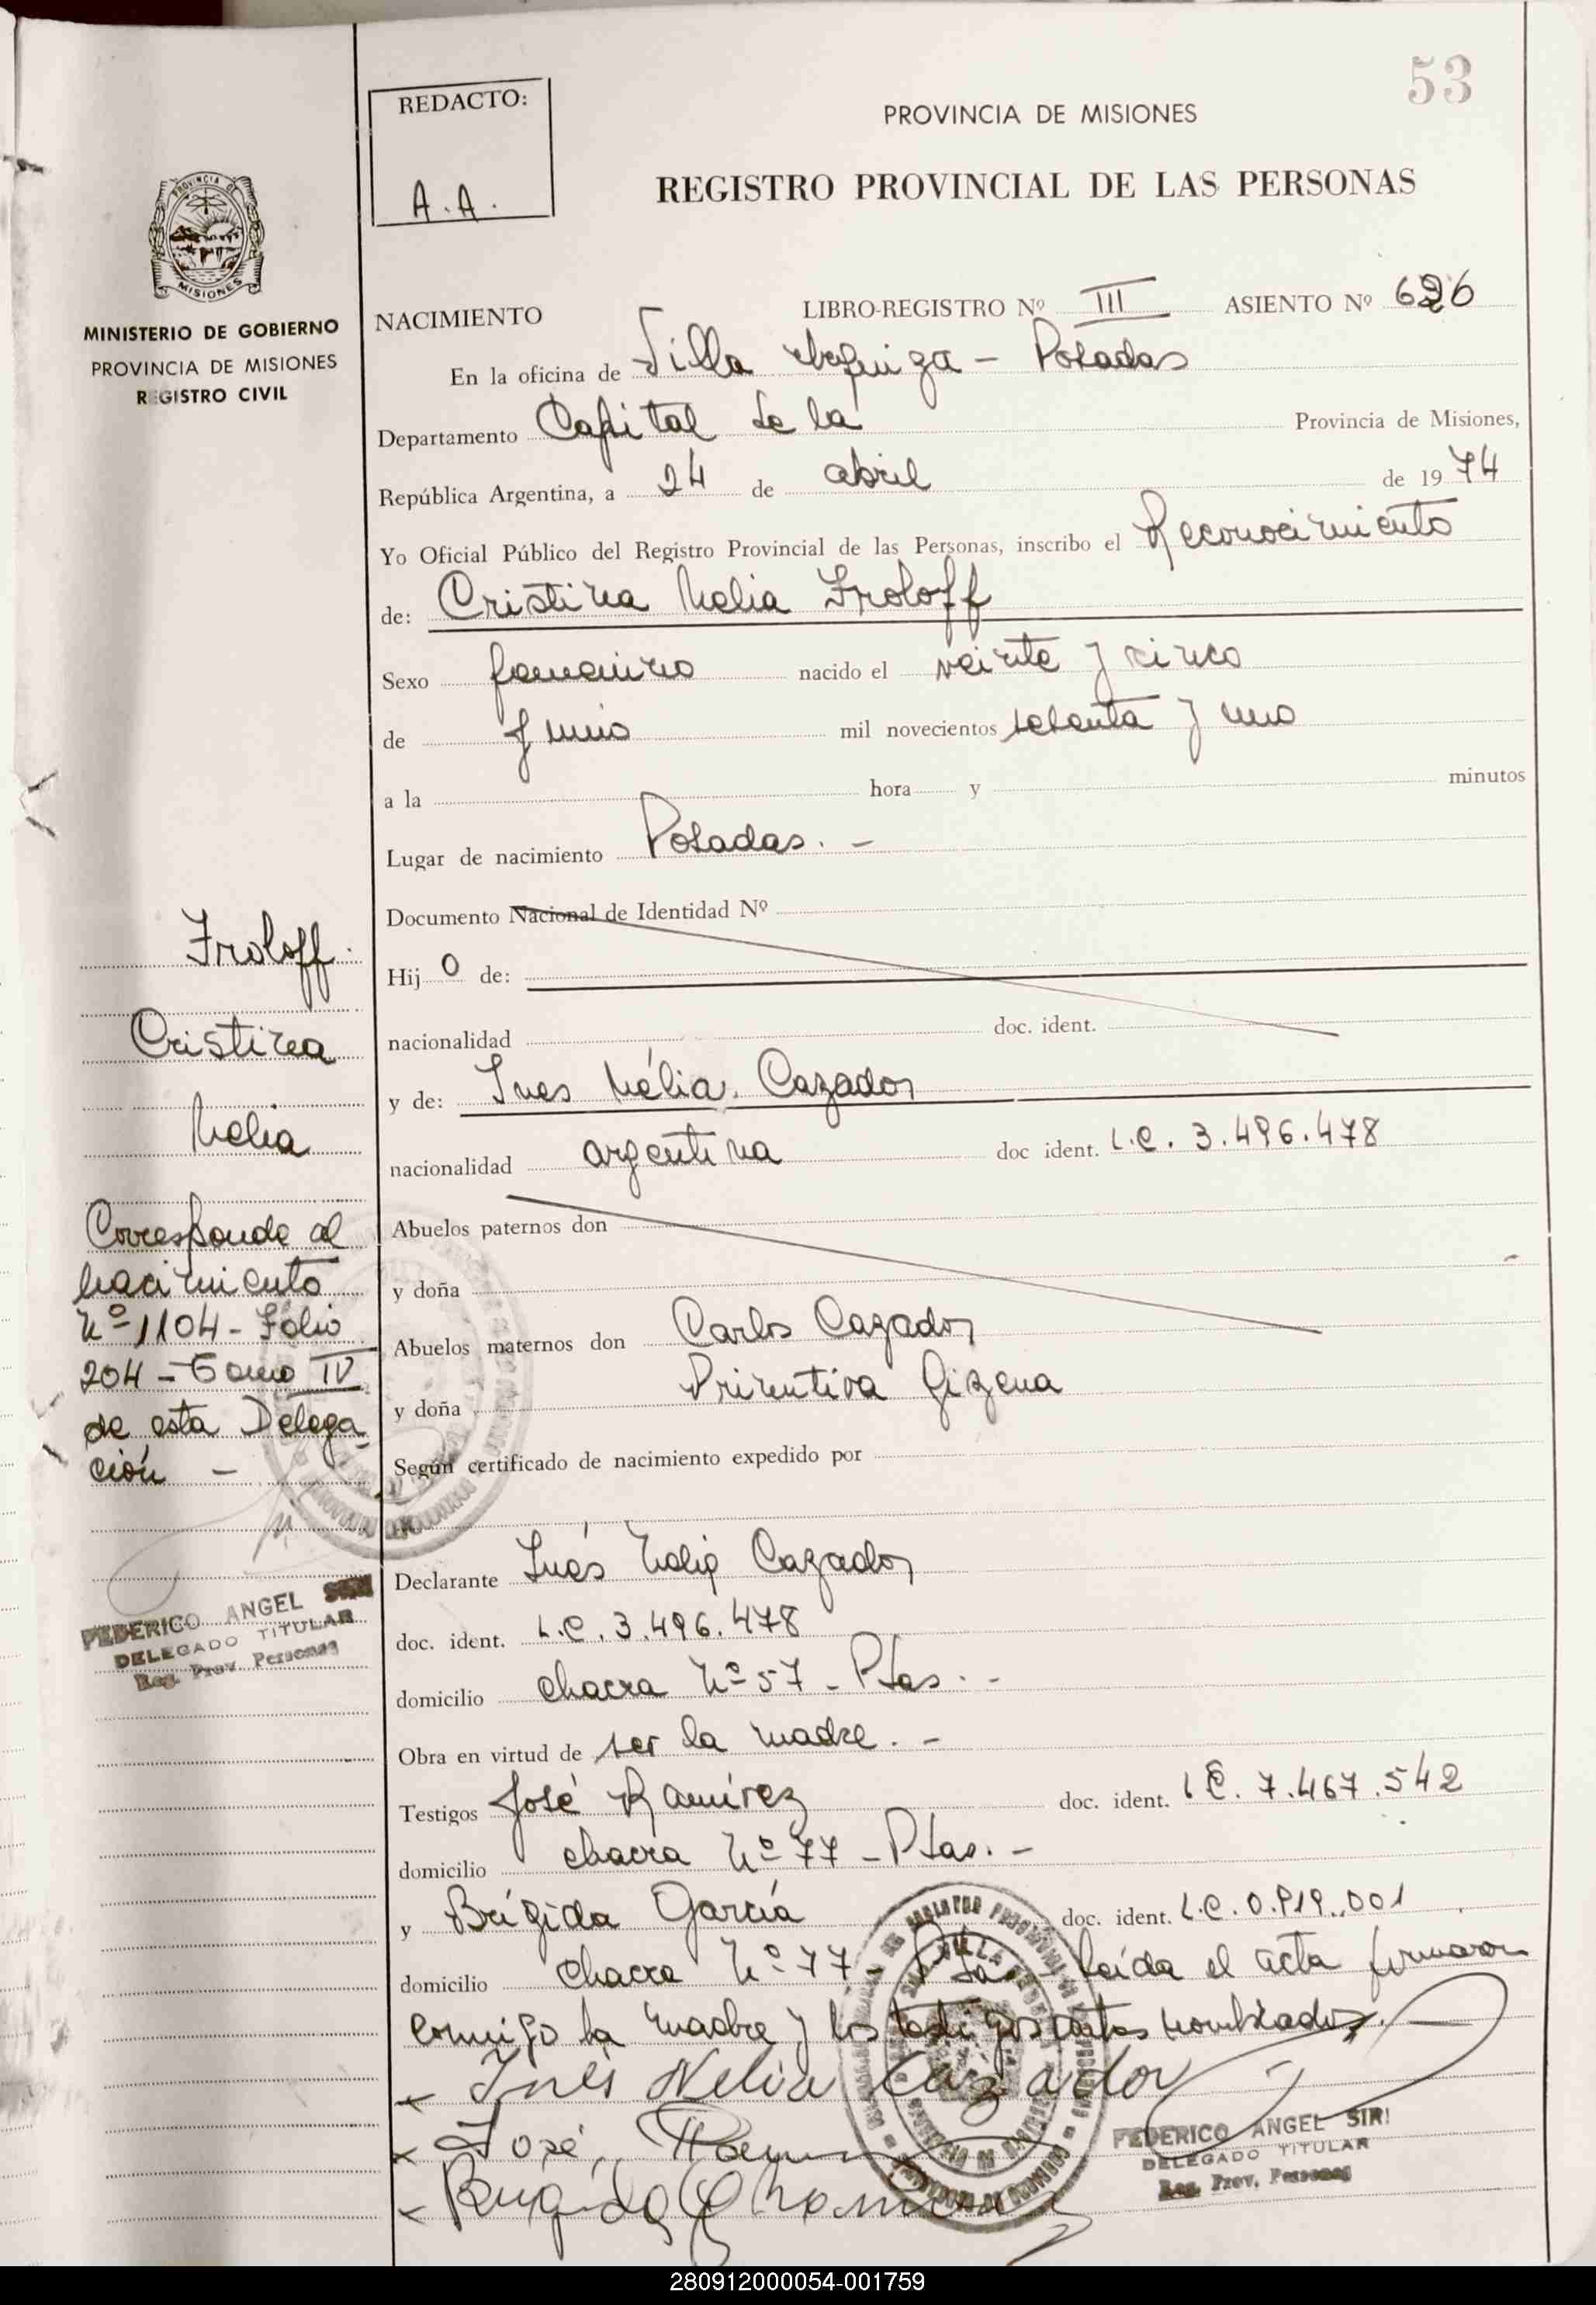 53
REDACTO:
A.A.
PROVINCIA DE MISIONES
REGISTRO PROVINCIAL DE LAS PERSONAS
PROVINCIA DE
MISIONES
MINISTERIO DE GOBIERNO
PROVINCIA DE MISIONES
REGISTRO CIVIL
NACIMIENTO LIBRO-REGISTRO Nº III ASIENTO Nº 626
En la oficina de Villa - Posadas
Departamento Capital de la Provincia de Misiones,
República Argentina, a 24 de abril de 1974
Yo Oficial Público del Registro Provincial de las Personas, inscribo el Reconocimiento
de: Cristina Nelia Froloff
Sexo femenino nacido el veinte y cinco
de Junio mil novecientos setenta y uno
a la hora y minutos
Lugar de nacimiento Posadas. -
Documento Nacional de Identidad Nº
Hij o de:
nacionalidad doc. ident.
y de: Ines Nélia Cazador
nacionalidad argentina doc ident. L.C. 3.496.478
Abuelos paternos don
y doña
Abuelos maternos don Carlos Cazador
y doña Primitiva Gizena
Según certificado de nacimiento expedido por
Declarante Inés Nelia Cazador
doc. ident. L.C. 3.496.478
domicilio chacra Nº 57 - Pdas. -
Obra en virtud de ser la madre. -
Testigos José Ramírez doc. ident. L.E. 7.467.542
domicilio chacra Nº 77 - Pdas. -
y Brígida García doc. ident. L.C. 0.919.001
domicilio chacra Nº 77 - Leída el acta firmaron
conmigo la madre y los testigos nombrados. -
Inés Nelia Cazador
José
FEDERICO ANGEL
DELEGADO TITULAR
Reg. Prov. Personas
Froloff
Cristina
Nelia
Corresponde al
Nacimiento
Nº 1104 - Folio
204 - Tomo IV
de esta Delega
ción -
FEDERICO ANGEL
DELEGADO TITULAR
Reg. Prov. Personas
280912000054-001759